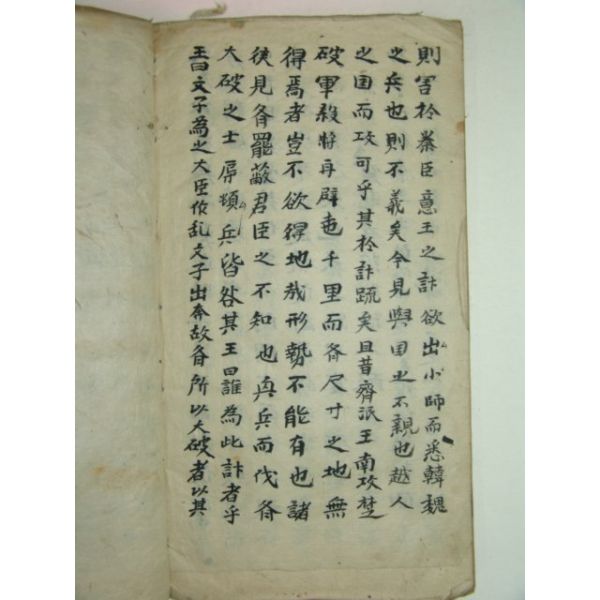 則害扵秦臣意王之計欲出小師而悉韓魏
之兵也則不義矣今見與囯之不親也越人
之囯而攻可乎其扵計疏矣且昔齊泯王南攻楚
破軍殺將再辟地千里而齊尺寸之地無
得焉者豈不欲得地哉形勢不能有也諸
侯見齊罷敝君臣之不知也興兵而伐齊
大破之士辱頓兵皆咎其王曰誰為此計者乎
王曰文子為之大臣作乱文子出奔故齊所以大破者以其